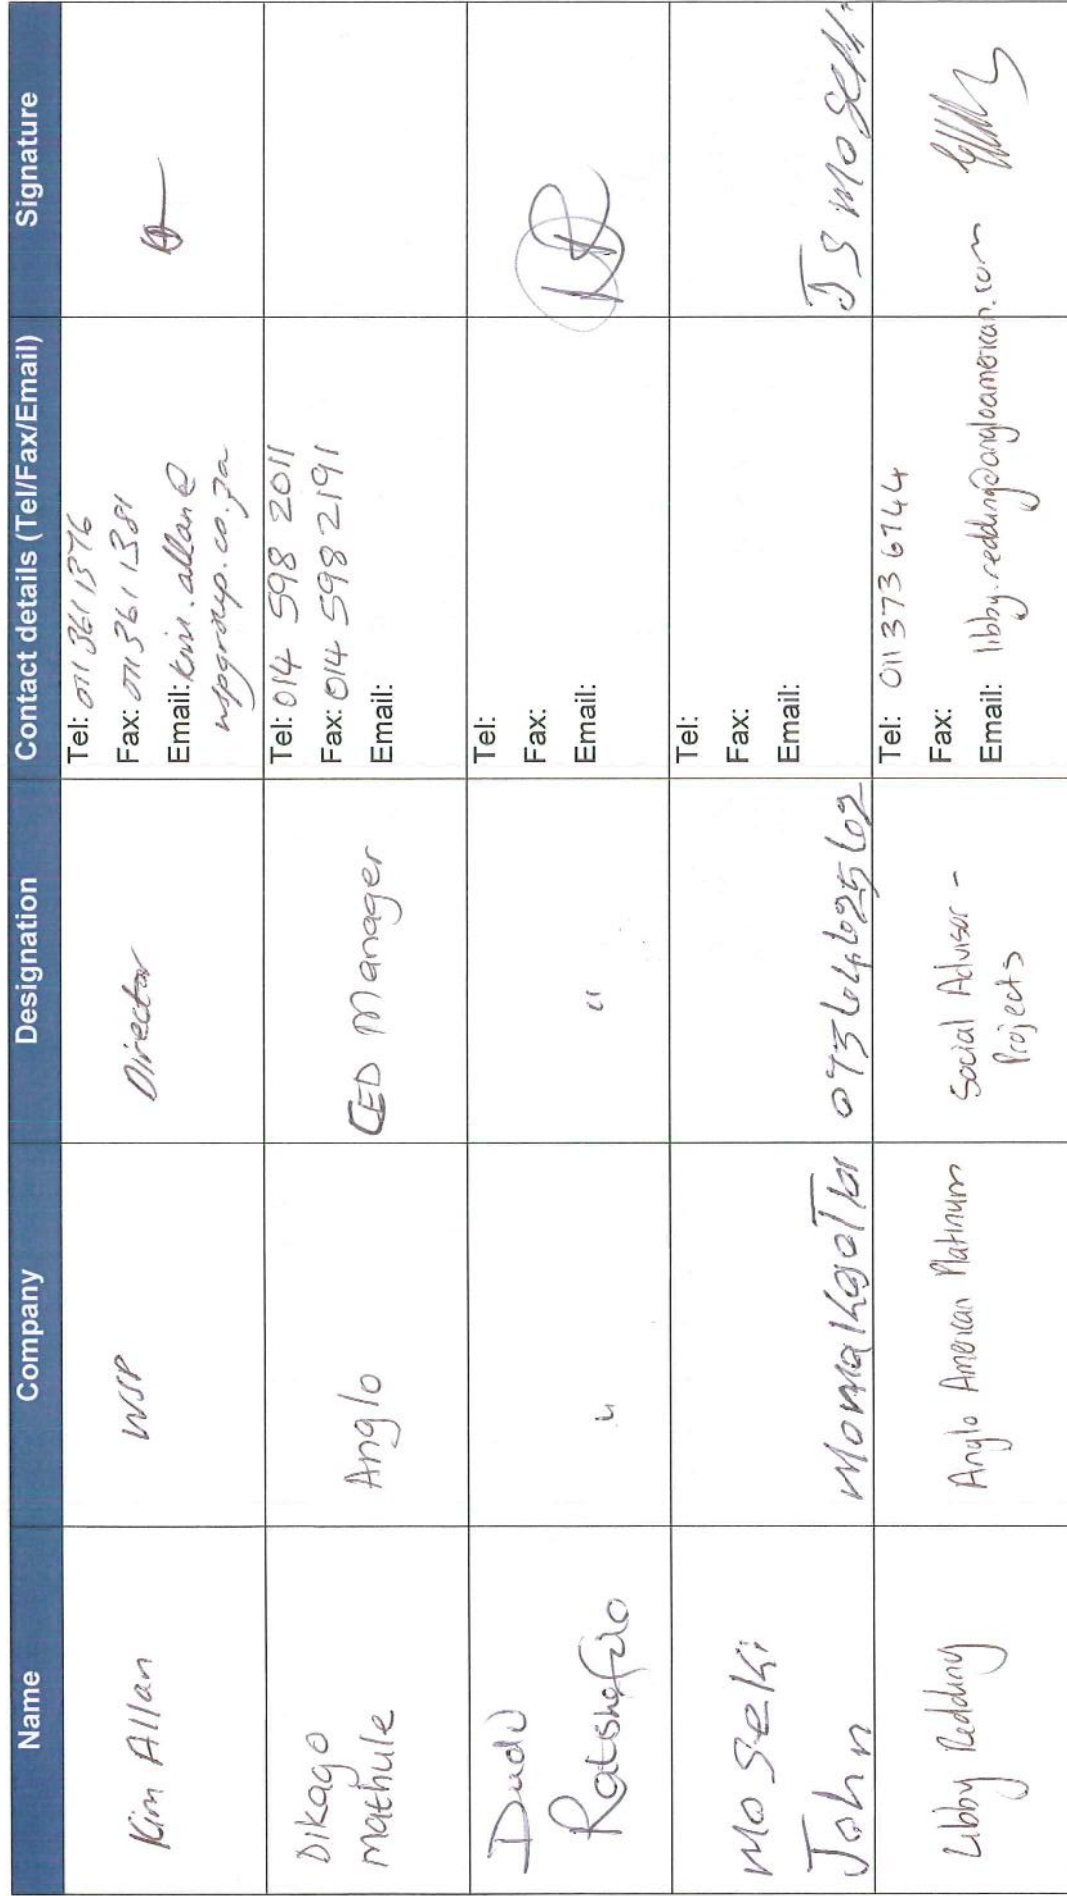 Name Company Designation Contact details (Tel/Fax/Email) Signature
Kim Allan WSP Director Tel: 011 361 1376
Fax: 011 361 1381
Email: kim.allan@
wspgroup.co.za
Dikago
Mathule Anglo CED Manager Tel: 014 598 2011
Fax: 014 598 2191
Email:
Dudu
Ratshefolo " " Tel:
Fax:
Email:
Moseki
John Tel:
Fax:
Email:
JS Moseki
Libby Redding Anglo American Platinum Social Advisor -
Projects Tel: 011 373 6744
Fax:
Email: libby.redding@angloamerican.com